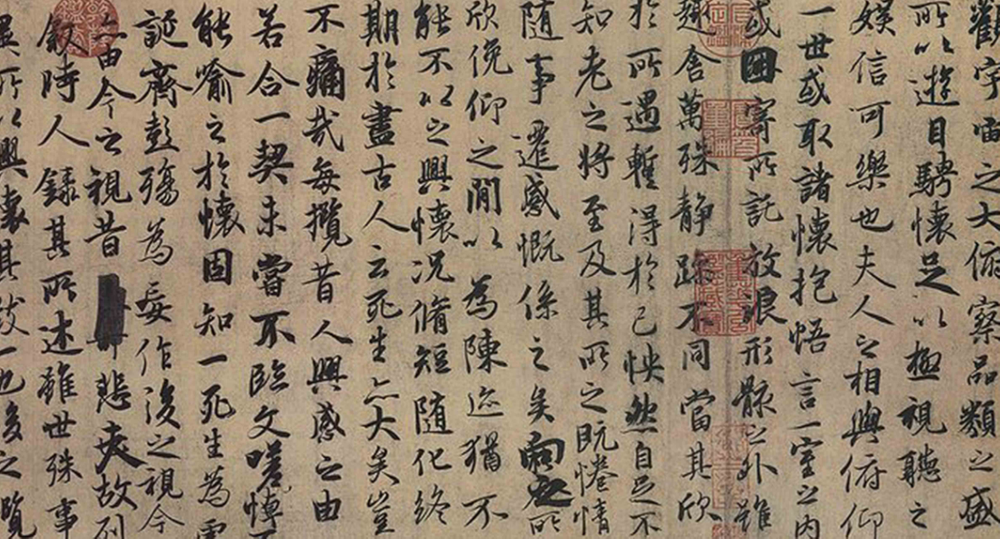 觀宇宙之大俯察品類之盛
所以遊目騁懷足以極視聽之
娛信可樂也夫人之相與俯仰
一世或取諸懷抱悟言一室之內
或因寄所託放浪形骸之外雖
趣舍萬殊静躁不同當其欣
於所遇暫得於己怏然自足不
知老之將至及其所之既惓情
随事遷感慨係之矣向之所
欣俛仰之閒以為陳迹猶不
能不以之興懷況脩短随化終
期於盡古人云死生亦大矣豈
不痛哉每攬昔人興感之由
若合一契未嘗不臨文嗟悼不
能喻之於懷固知一死生為虛
誕齊彭殤為妄作後之視今
亦由今之視昔悲夫故列
叙時人錄其所述雖世殊事
異所以興懷其致一也後之覽